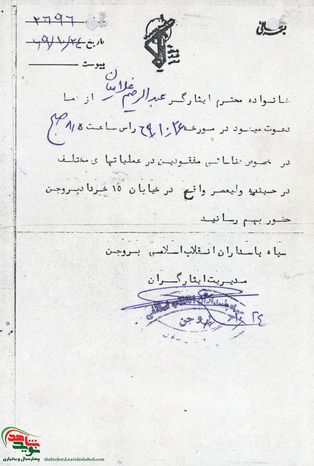 بسمه تعالی
شماره ۲۶۹۶
تاریخ ۶۹/۱۰/۲۴
پیوست
خانواده محترم ایثارگر عبدالرحیم غلامیان از شما
دعوت میشود در مورخه ۶۹/۱۰/۲۶ راس ساعت ۸/۵ صبح
در خصوص شناسائی مفقودین در عملیاتهای مختلف
در حسینیه ولیعصر واقع در خیابان ۱۵ خرداد بروجن
حضور بهم رسانید
سپاه پاسداران انقلاب اسلامی بروجن
مدیریت ایثارگران
بروجن
۱۰/۲۴
نوید شاهد
چهارمحال و بختیاری
shahrekord.navideshahed.com